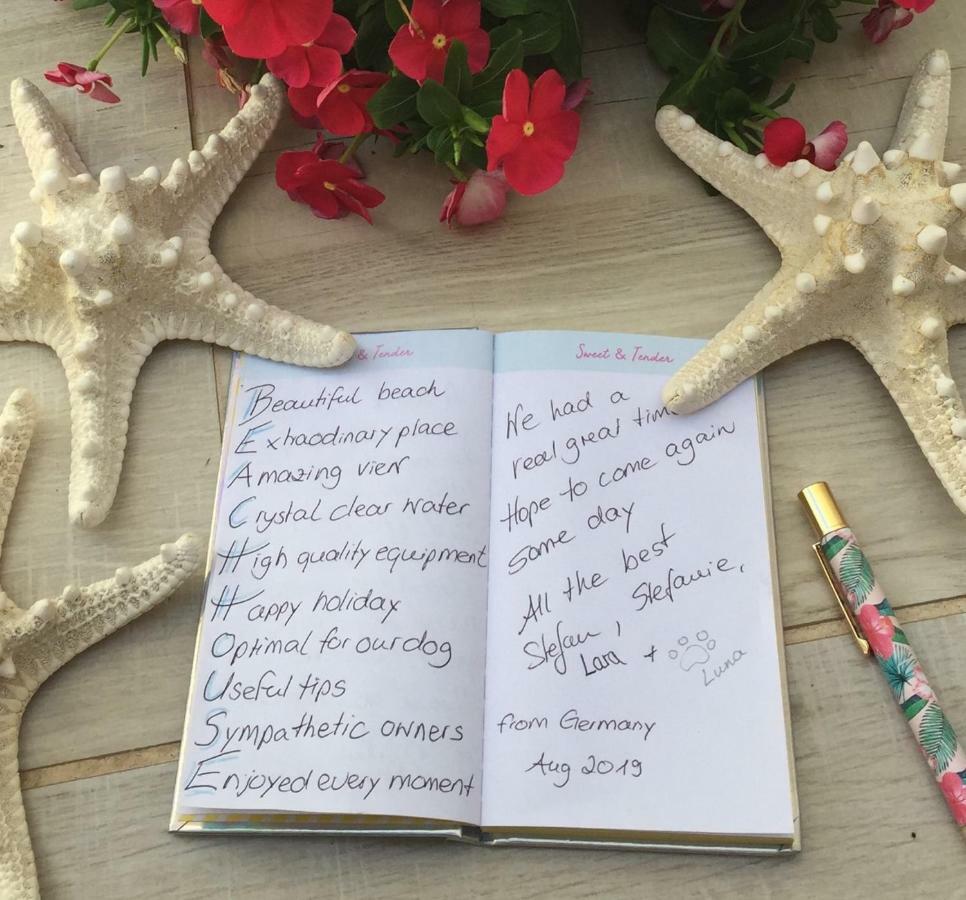 & Tender
Beautiful beach
Exhaodinary place
Amazing view
Crystal clear water
High quality equipment
Happy holiday
Optimal for our dog
Useful tips
Sympathetic owners
Enjoyed every moment
Sweet & Tender
We had a
real great time
Hope to come again
some day
All the best
Stefan, Stefanie,
Lara + Luna
from Germany
Aug 2019